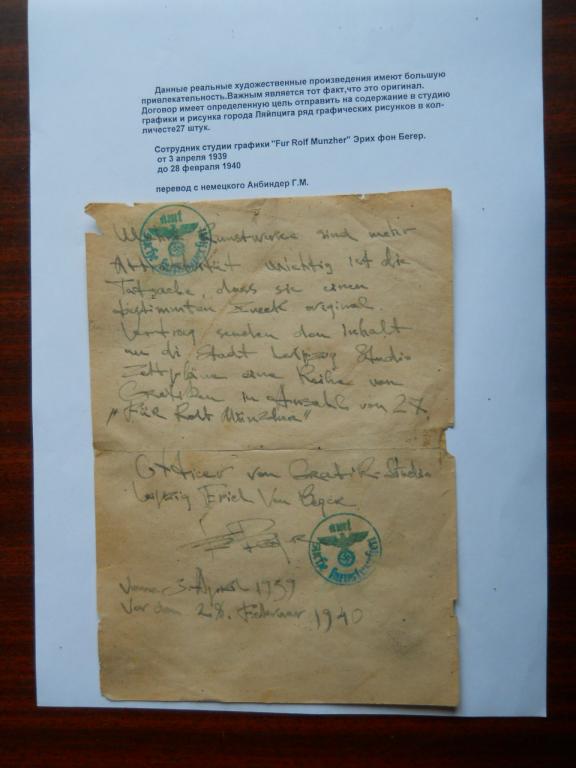 Данные реальные художественные произведения имеют большую
привлекательность.Важным является тот факт,что это оригинал.
Договор имеет определенную цель отправить на содержание в студию
графики и рисунка города Ляйпцига ряд графических рисунков в кол-
личесте27 штук.
Сотрудник студии графики "Fur Rolf Munzher" Эрих фон Бегер.
от 3 апреля 1939
до 28 февраля 1940
перевод с немецкого Анбиндер Г.М.
amt
Kunstwerke sind mehr
wichtig ist die
Tatsache, dass sie einen
bestimmten Zweck original.
Vertrag senden den Inhalt
an di Stadt Leipzig Studio
eine Reihe von
Grafiken in Anzahl von 27
"Für Rolf
Officer von Grafik-Studio
Leipzig Erich Von
amt
3 April 1939
Vor dem 28. Februar 1940